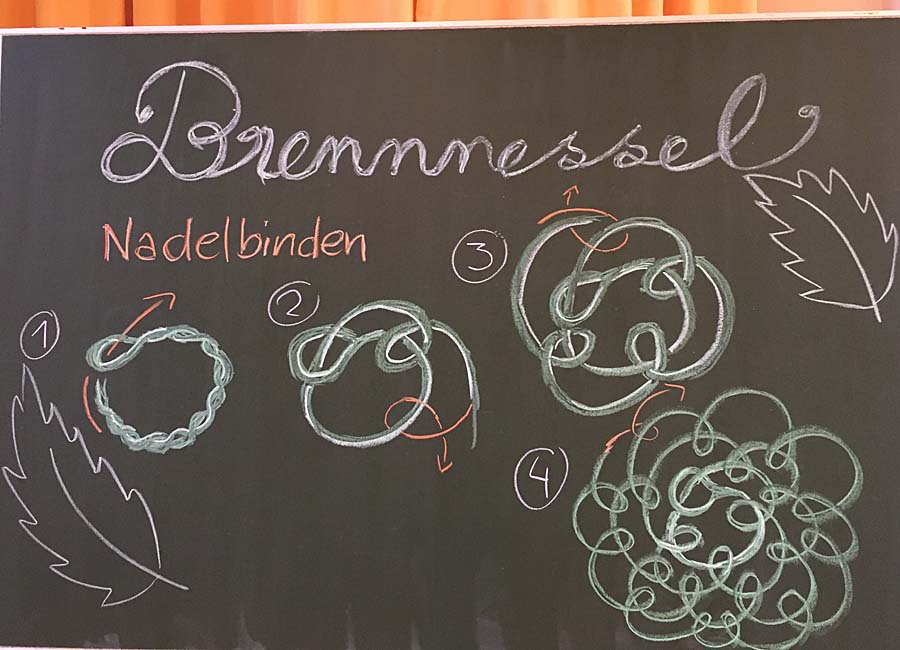 Brennnessel
Nadelbinden
1
2
3
4